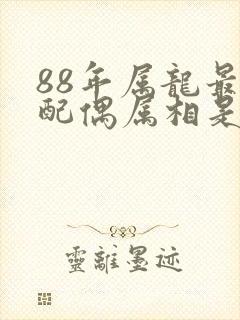 88年属龍最
配偶属相是
靈離墨迹